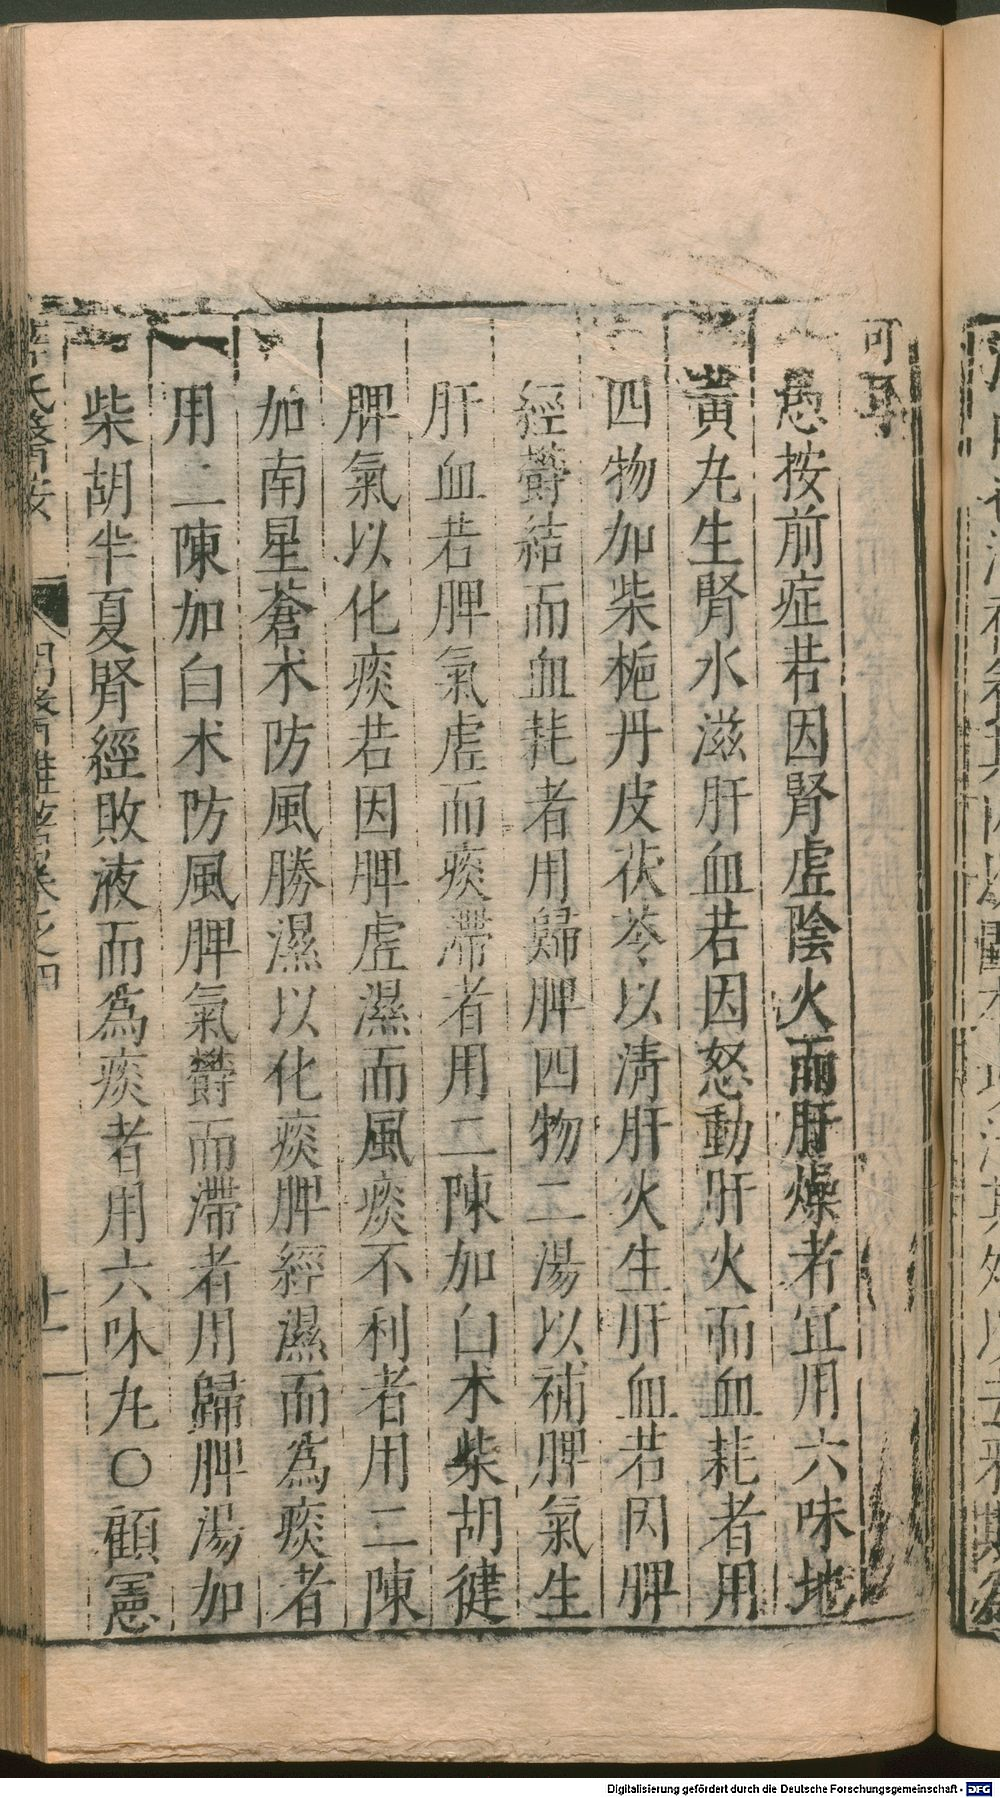 可耳
愚按前症若因腎虛陰火而肝燥者宜用六味地
黃丸生腎水滋肝血若因怒動肝火而血耗者用
四物加柴梔丹皮茯苓以清肝火生肝血若因脾
經鬱結而血耗者用歸脾四物二湯以補脾氣生
肝血若脾氣虛而痰滯者用二陳加白朮柴胡健
脾氣以化痰若因脾虛濕而風痰不利者用二陳
加南星蒼朮防風勝濕以化痰脾經濕而為痰者
用二陳加白朮防風脾氣鬱而滯者用歸脾湯加
柴胡半夏腎經敗液而為痰者用六味丸〇顧憲
氏醫按 明醫雜著卷之四 十一
Digitalisierung gefördert durch die Deutsche Forschungsgemeinschaft - DFG